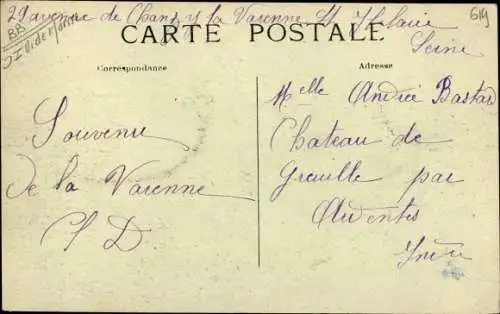 29 avenue de Chanzy la Varenne St Hilaire
Seine
619
BB
CARTE POSTALE
Correspondance
Adresse
Souvenir
de la Varenne
S D
Melle Andrée Bastard
Chateau de
Greuille par
Ardentes
Indre